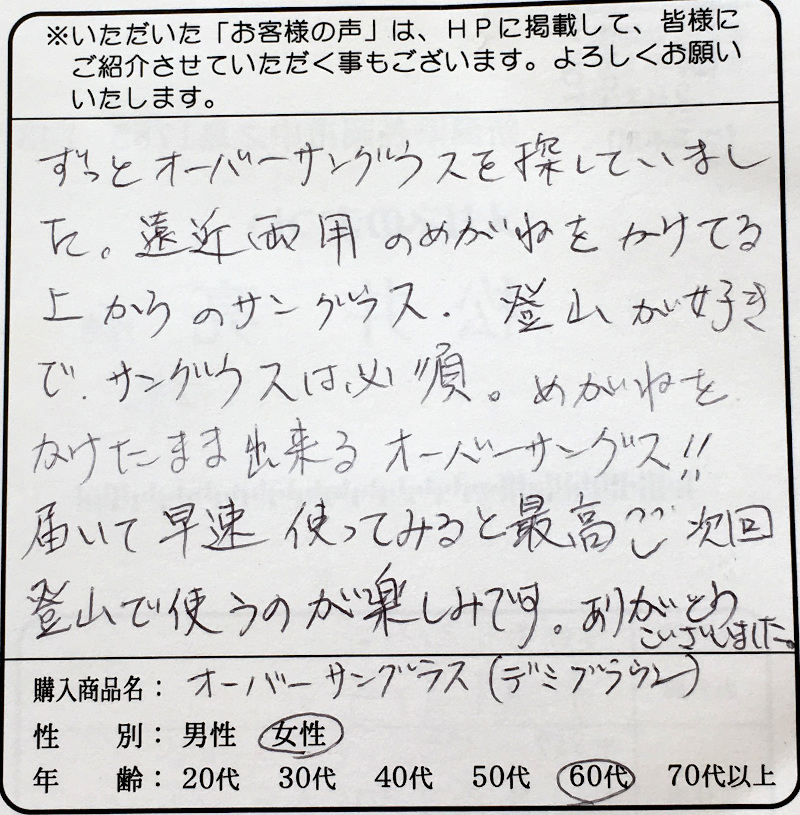 ※いただいた「お客様の声」は、HPに掲載して、皆様に
ご紹介させていただく事もございます。よろしくお願い
いたします。
ずっとオーバーサングラスを探していまし
た。遠近両用のめがねをかけてる
上からのサングラス. 登山が好き
で. サングラスは必須。めがねを
かけたまま出来るオーバーサングス!!
届いて早速 使ってみると最高 次回
登山で使うのが楽しみです。ありがとう
ございました。
購入商品名：オーバーサングラス(デミブラウン)
性　別：男性 女性
年　齢：20代 30代 40代 50代 60代 70代以上